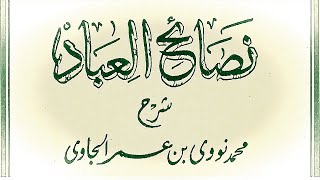 نصائح العباد
شرح
محمد نووي بن عمر الجاوى